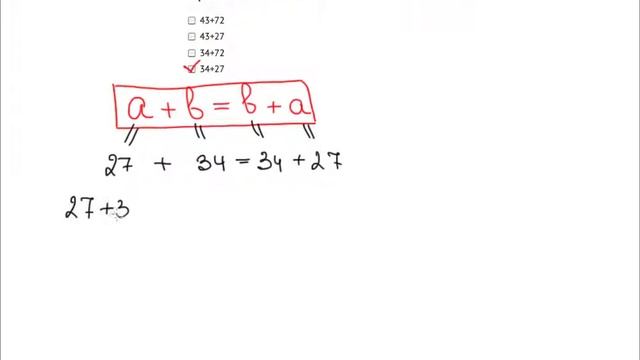 43+72
43+27
34+72
34+27
a + b = b + a
27 + 34 = 34 + 27
27+3